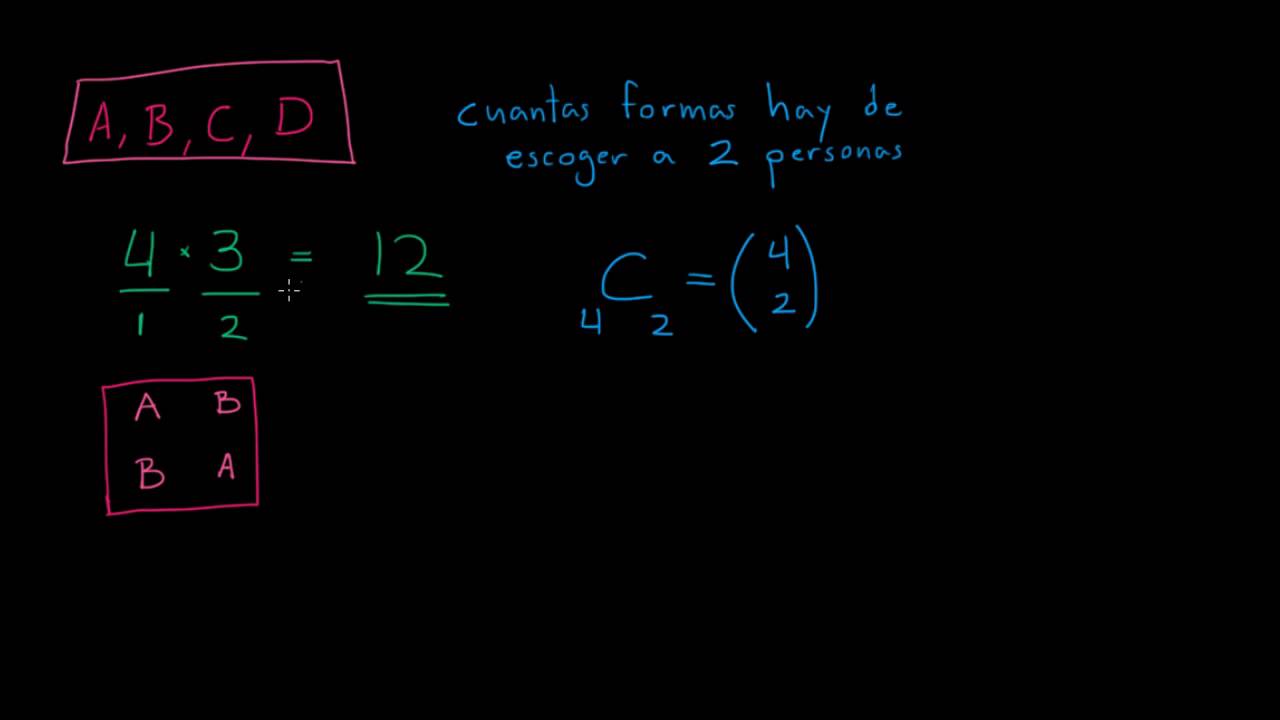 A, B, C, D
cuantas formas hay de
escoger a 2 personas
4 × 3 = 12
1 2
4C2 = (4 2)
A B
B A